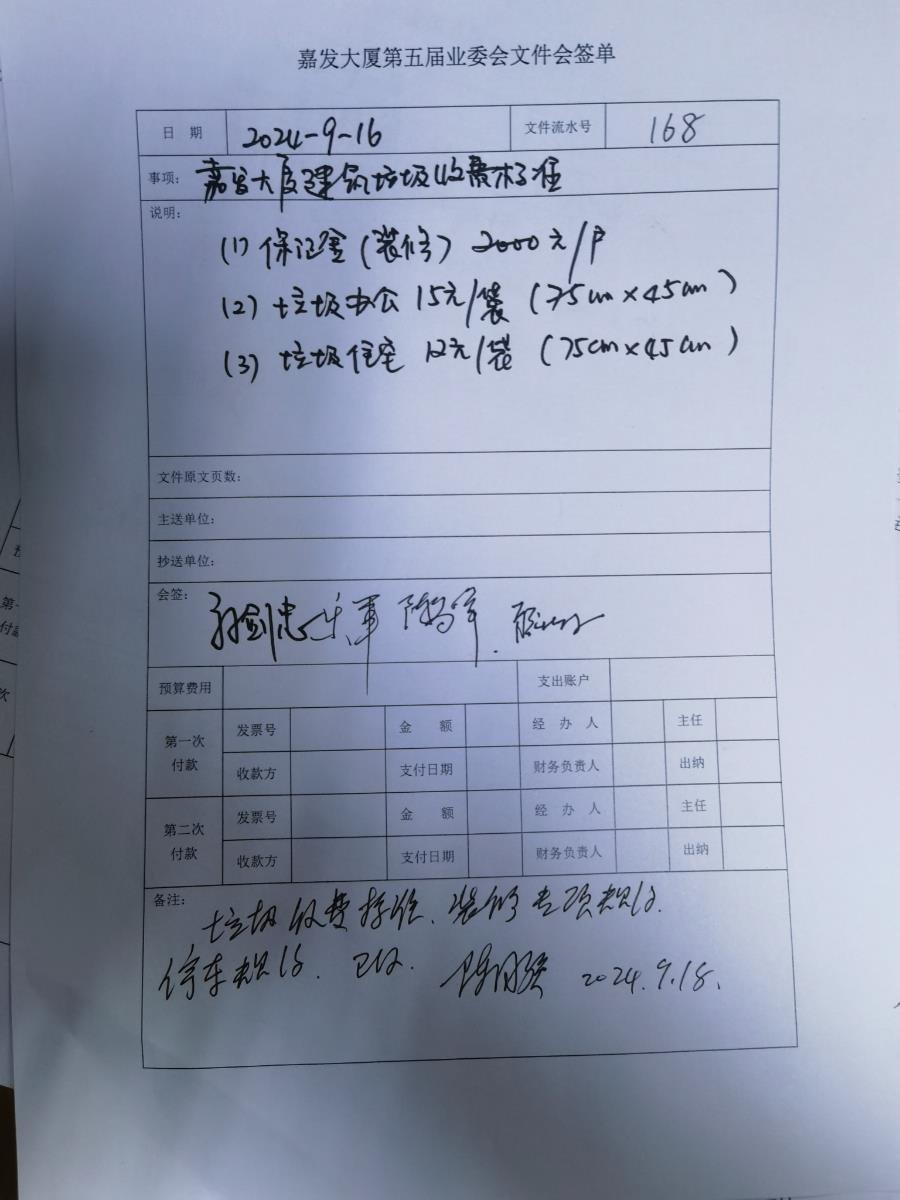 嘉发大厦第五届业委会文件会签单
日 期 2024-9-16 文件流水号 168
事项: 嘉发大厦建筑垃圾收费标准
说明:
(1) 保证金(装修) 2000元/户
(2) 垃圾办公 15元/袋 (75cm×45cm)
(3) 垃圾住宅 12元/袋 (75cm×45cm)
文件原文页数:
主送单位:
抄送单位:
会签: 孙剑忠
预算费用 支出账户
第一次付款 发票号 金 额 经 办 人 主任
收款方 支付日期 财务负责人 出纳
第二次付款 发票号 金 额 经 办 人 主任
收款方 支付日期 财务负责人 出纳
备注:
垃圾收费标准、装修专项规约、
停车规约、已收. 2024.9.18.